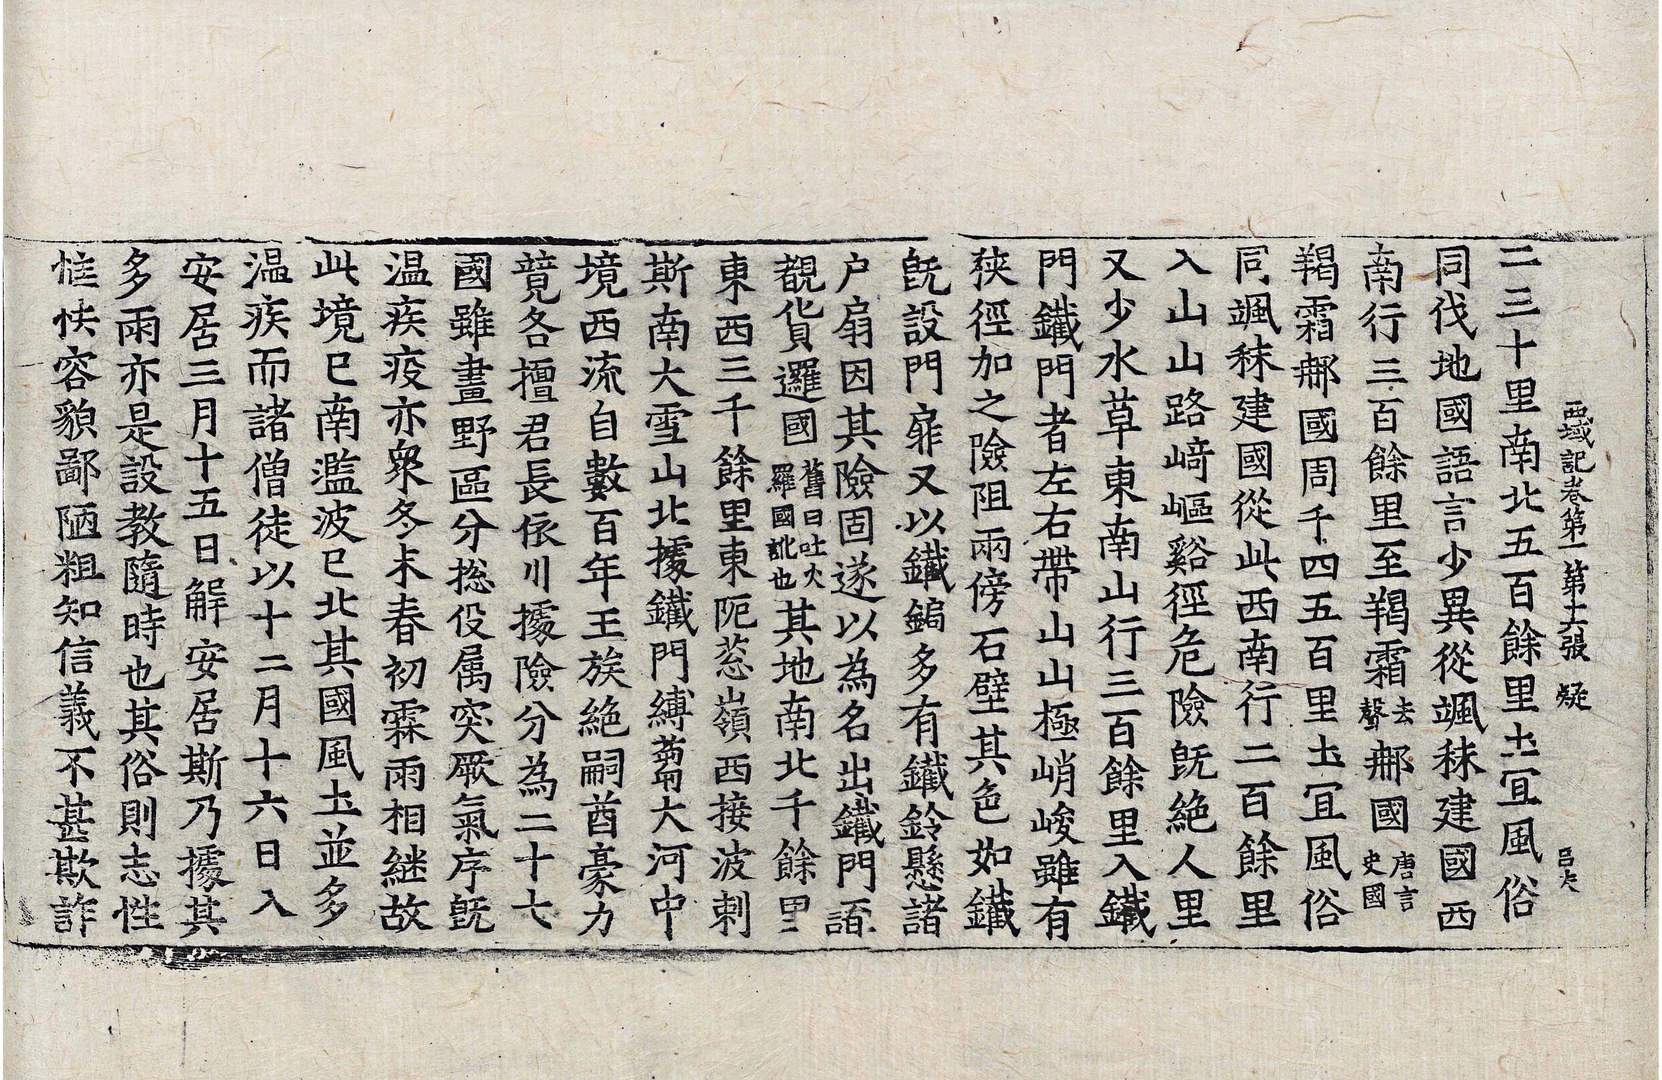 西域記卷第一 第十六張 疑 呂夫
二三十里南北五百餘里土宜風俗
同伐地國語言少異從颯秣建國西
南行三百餘里至羯霜去聲𨚗國唐言史國
羯霜𨚗國周千四五百里土宜風俗
同颯秣建國從此西南行二百餘里
入山山路﨑嶇谿徑危險既絶人里
又少水草東南山行三百餘里入鐵
門鐵門者左右帶山山極峭峻雖有
狹徑加之險阻兩傍石壁其色如鐵
既設門扉又以鐵鎢多有鐵鈴懸諸
户扇因其險固遂以為名出鐵門至
覩貨邏國舊曰吐火羅國訛也其地南北千餘里
東西三千餘里東阨葱嶺西接波剌
斯南大雪山北據鐵門縛蒭大河中
境西流自數百年王族絶嗣酋豪力
競各擅君長依川據險分為二十七
國雖畫野區分摠役属突厥氣序既
温疾疫亦衆冬末春初霖雨相継故
此境已南濫波已北其國風土並多
温疾而諸僧徒以十二月十六日入
安居三月十五日解安居斯乃據其
多雨亦是設教隨時也其俗則志性
恇怯容貌鄙陋粗知信義不甚欺詐